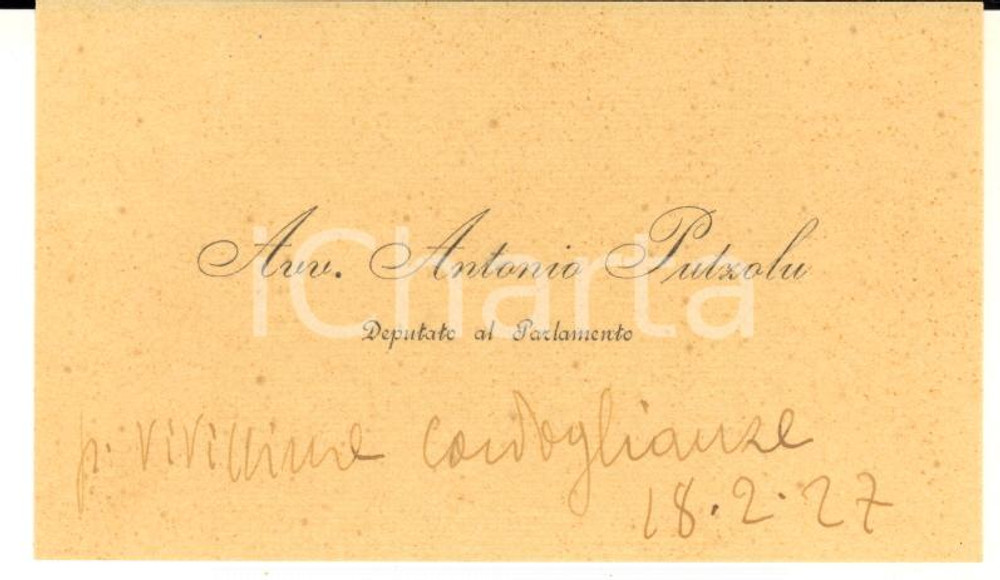 Avv. Antonio Putzolu
iCharta
Deputato al Parlamento
p. vivissime condoglianze
18.2.27